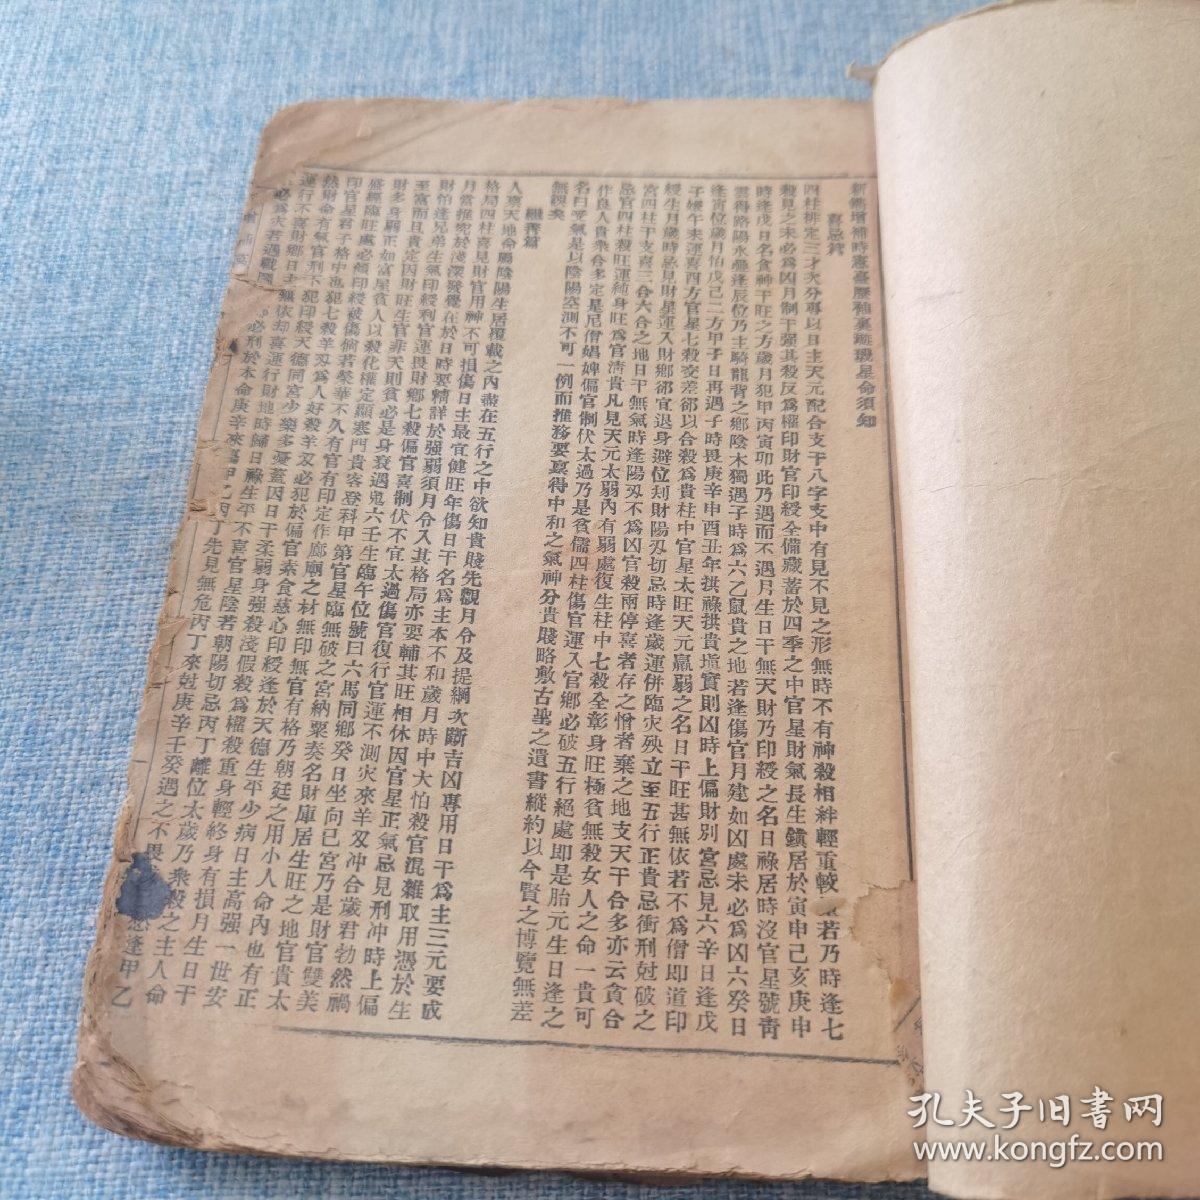 新鐫增補時憲臺歷袖裏璇璣星命須知
喜忌篇
四柱排定三才次分專以日主天元配合支干八字支中有見不見之形無時不有神殺相絆輕重較若乃時逢七
殺見之未必為凶月制干強其殺反為權印財官印綬全備藏蓄於四季之中官星財氣長生鎮居於寅申己亥庚申
時逢戊日名食神干旺之方歲月犯甲丙寅卯此乃遇而不遇月生日干無天財乃印綬之名日祿居時沒官星號青
雲得路陽水疊逢辰位乃壬騎龍背之鄉陰木獨遇子時為六乙鼠貴之地若逢傷官月建如凶處未必為凶六癸日
逢寅位歲月怕戊己二方甲子日再遇子時畏庚辛申酉丑午拱祿拱貴塡實則凶時上偏財別宮忌見六辛日逢戊
子嫌午未運喜西方官星七殺交差卻以合殺為貴柱中官星太旺天元羸弱之名日干旺甚無依若不為僧即道印
綬生月歲時忌見財星運入財鄉卻宜退身避位刦財陽刄切忌時逢歲運併臨災殃立至五行正貴忌衝刑尅破之
宮四柱干支喜三合六合之地日干無氣時逢陽刄不為凶官殺兩停喜者存之憎者棄之地支天干合多亦云貪合
忌官四柱殺旺運純身旺為官清貴凡見天元太弱內有弱處復生柱中七殺全彰身旺極貧無殺女人之命一貴可
作良人貴衆合多定是尼僧娼婢偏官制伏太過乃是貧儒四柱傷官運入官鄉必破五行絕處即是胎元生日逢之
名曰受氣是以陰陽罕測不可一例而推務要稟得中和之氣神分貴賤略敷古聖之遺書縱約以今賢之博覽無差
無誤矣
繼善篇
人稟天地命屬陰陽生居覆載之內盡在五行之中欲知貴賤先觀月令及提綱次斷吉凶專用日干為主三元要成
格局四柱喜見財官用神不可損傷日主最宜健旺年傷日干名為主本不和歲月時中大怕殺官混雜取用憑於生
月當推究於淺深發覺在於日時要精詳於強弱須月令入其格局亦要輔其旺相休因官星正氣忌見刑冲時上偏
財怕逢兄弟生氣印綬利官運畏財鄉七殺偏官喜制伏不宜太過傷官復行官運不測災來羊刄冲合歲君勃然禍
至富而且貴定因財旺生官非夭則貧必是身衰遇鬼六壬生臨午位號曰六馬同鄉癸日坐向巳宮乃是財官雙美
財多身弱正如富屋貧人以殺化權定顯寒門貴客登科甲第官星臨無破之宮納粟奏名財庫居生旺之地官貴太
盛纔臨旺處必傾印綬被傷倘若榮華不久有官有印定作廊廟之材無印無官有格乃朝廷之用小人命內也有正
印官星君子格中也犯七殺羊刄為人好殺羊刄必犯於偏官素食慈心印綬逢於天德生平少病日主高強一世安
然財命有氣官刑不犯印綬天德同宮少樂多憂蓋因日干柔弱身強殺淺假殺為權殺重身輕終身有損月生日干
運行不喜財鄉日主無依却喜運行財地時歸日祿生平不喜官星陰若朝陽切忌丙丁離位太歲乃衆殺之主人命
必為災若遇戰鬥必刑於本命庚辛來傷甲乙丙丁先見無危丙丁來尅庚辛壬癸遇之不畏逢甲乙
孔夫子旧書网
www.kongfz.com